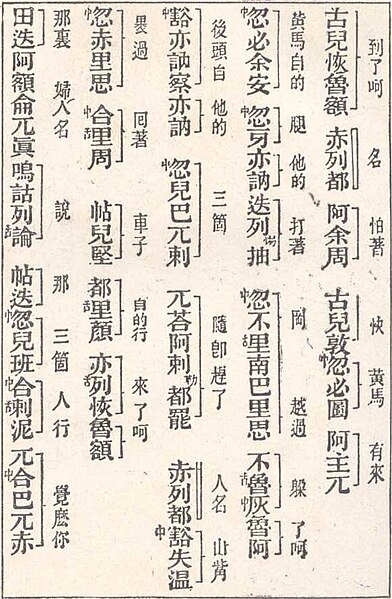 到了呵 名 怕著 快 黃馬 有來
古兒恢魯額 赤列都 阿余周 古兒敦中忽必圖 阿主兀
黃馬自的 腿 他的 打著 岡 越過 躱 了呵
中忽必余安 中忽牙亦訥 迭列惕抽 中忽不舌里南巴里思 不魯中灰魯阿
後頭自 他的 三箇 隨卽趕了 人名 山觜
中豁亦訥察亦訥 中忽兒巴兀剌 兀荅阿剌勒都罷 赤列都中豁失温
過 回著 車子 自的行 來了呵
中忽赤里思 中合里周 帖兒堅 都舌里顏 亦舌列恢魯額
那裏 婦人名 說 那 三箇 人行 覺麽你
田迭阿額侖兀眞嗚詁列舌論 帖迭中忽兒班中合舌剌泥 兀中合巴兀赤